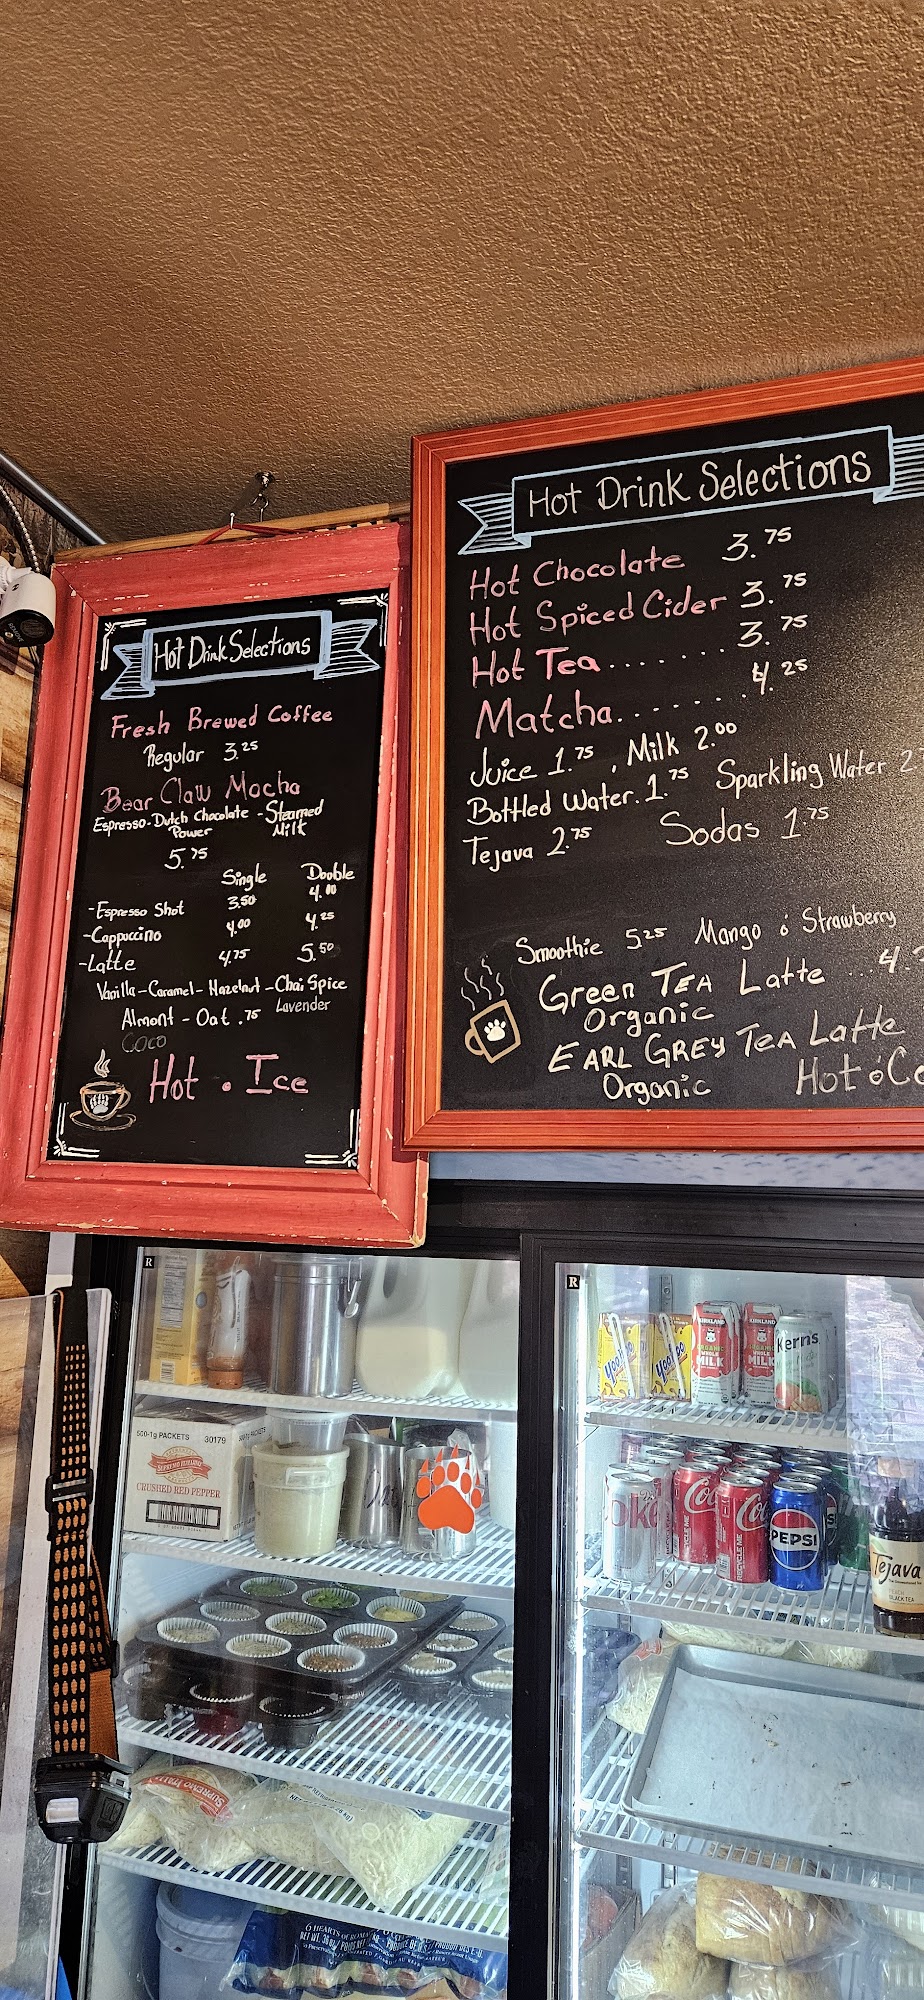 Hot Drink Selections
Fresh Brewed Coffee
Regular 3.25
Bear Claw Mocha
Espresso-Dutch Chocolate - Steamed
Power Milk
5.75
Single Double
-Espresso Shot 3.50 4.00
-Cappuccino 4.00 4.25
-Latte 4.75 5.50
Vanilla-Caramel-Hazelnut-Chai Spice
Almont - Oat .75 Lavender
COCO
Hot . Ice
Hot Drink Selections
Hot Chocolate 3.75
Hot Spiced Cider 3.75
Hot Tea....... 3.75
Matcha....... 4.25
Juice 1.75, Milk 2.00
Bottled Water. 1.75 Sparkling Water 2
Tejava 2.75 Sodas 1.75
Smoothie 5.25 Mango ó Strawberry
Green TEA Latte ...4.
Organic
EARL GREY TEA Latte
Organic Hot ó Co
R
R
YooHoo
YooHoo
KIRKLAND
ORGANIC
WHOLE
MILK
KIRKLAND
MILK
Kerns
500-1g PACKETS 30179
SUPREMO ITALIANO
CRUSHED RED PEPPER
Coke
RECYCLE ME
Coca
RECYCLE ME
PEPSI
Tejava
BLACK TEA
SUPREMO ITALIANO
6 HEARTS OF ROMA
NET WT.
PRODUCE OF